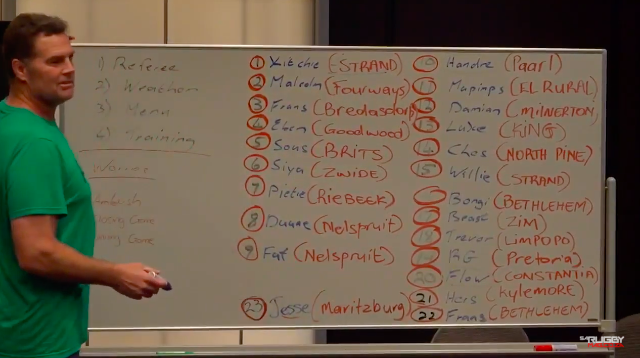 1) Referee
2) Weather
3) Menu
4) Training
1 Kitchie (STRAND)
2 Malcolm (Fourways)
3 Frans (Bredasdorp
4 Eben (Goodwood)
5 Sous (BRITS)
6 Siya (ZWIDE)
7 Pietie (RIEBEEK)
8 Duane (Nelspruit)
9 Faf (Nelspruit)
23 Jesse (Maritzburg)
10 Handre (Paarl)
11 Mapimps (EL RURAL)
12 Damian (MILNERTON)
13 Luke (KING)
14 Ches (NORTH PINE)
15 Willie (STRAND)
Bongi (BETHLEHEM)
17 Beast (ZIM)
18 Trevor (LIMPOPO)
19 RG (Pretoria)
20 Flow (CONSTANTIA)
21 Hers (Kylemore)
22 Frans (BETHLEHEM)
SA RUGBY